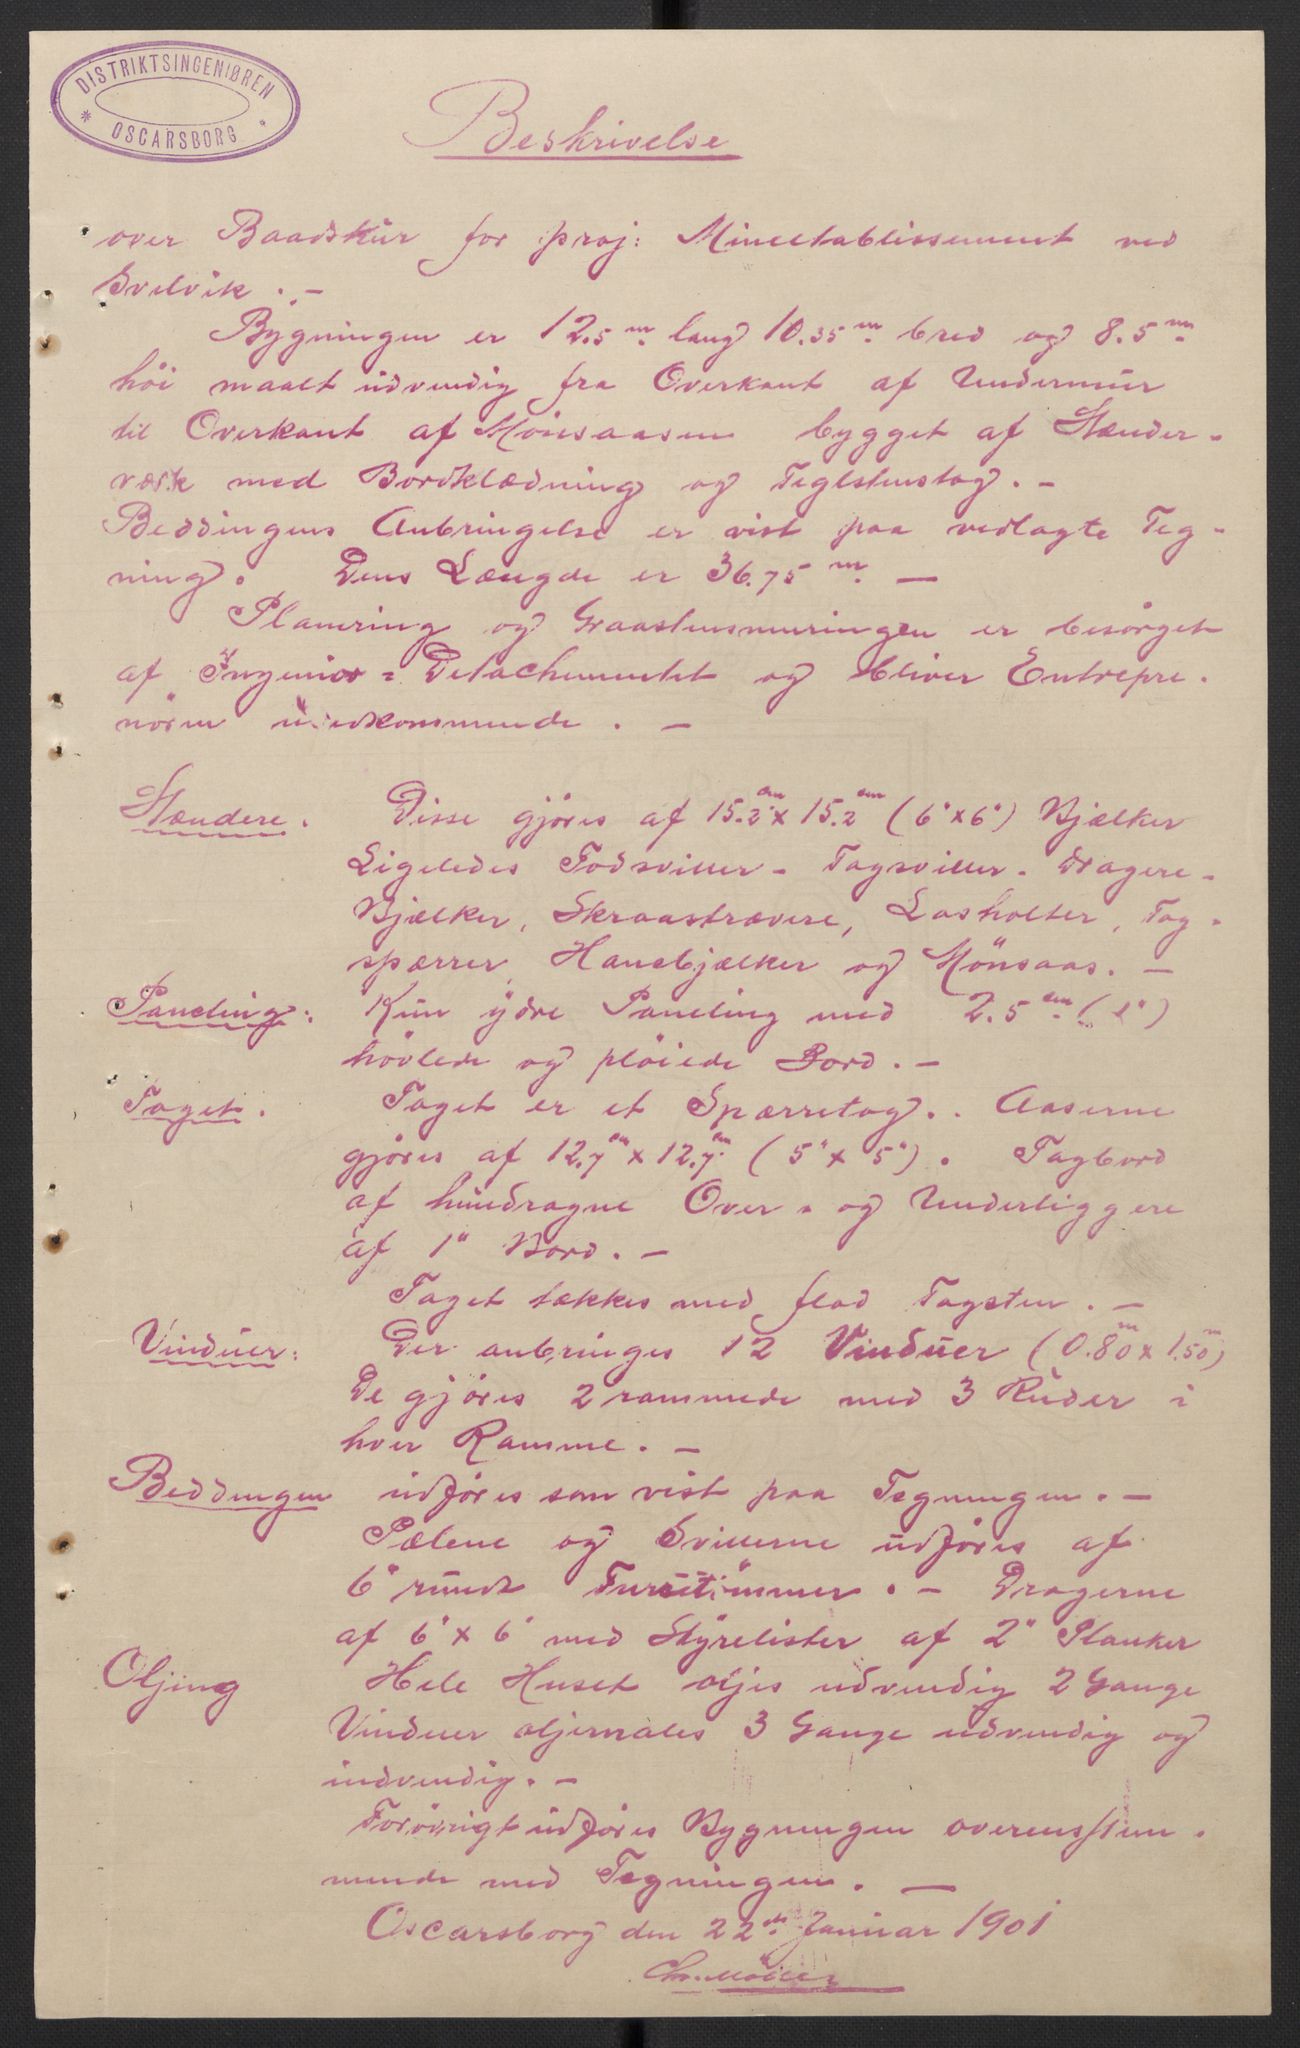 DISTRIKTSINGENIØREN
OSCARSBORG
Beskrivelse
over Baadskur for proj: Mineetablissement ved
Svelvik. –
Bygningen er 12.5 m lang 10.35 m bred og 8.5 m
höi maalt udvendig fra Overkant af Undermur
til Overkant af Mönsaasen bygget af Stænder-
værk med Bordklædning og Teglstenstag. –
Beddingens Anbringelse er vist paa vedlagte Teg-
ning. Dens Længde er 36.75 m –
Planering og Graastensmuringen er besörget
af Ingeniör = Detachementet og bliver Entrepre-
nören uvedkommende. –
Stændere. Disse gjöres af 15.2 cm x 15.2 cm (6" x 6") Bjælker
Ligeledes Fodsviller - Tagsviller - Dragere -
Bjælker, Skraastrævere, Losholter, Tag-
spærrer, Hanebjælker og Mönsaas. –
Paneling: Kun ydre Paneling med 2.5 cm (1")
hövlede og plöiede Bord. –
Taget. Taget er et Spærretag. Aaserne
gjöres af 12.7 cm x 12.7 cm (5" x 5"). Tagbord
af hundragne Over- og Underliggere
af 1" Bord. –
Taget tækkes med flad Tagsten. –
Vinduer: Der anbringes 12 Vinduer (0.80 m x 1.50 m)
De gjöres 2 rammede med 3 Ruder i
hver Ramme. –
Beddingen udföres som vist paa Tegningen. –
Pælene og Svillerne udföres af
6" rundt Furutömmer. – Dragerne
af 6" x 6" med Styrelister af 2" Planker
Oljing Hele Huset oljes udvendig 2 Gange
Vinduer oljemales 3 Gange udvendig og
indvendig. –
Forövrigt udföres Bygningen overensstem-
mende med Tegningen. –
Oscarsborg den 22de Januar 1901
Chr. Möller